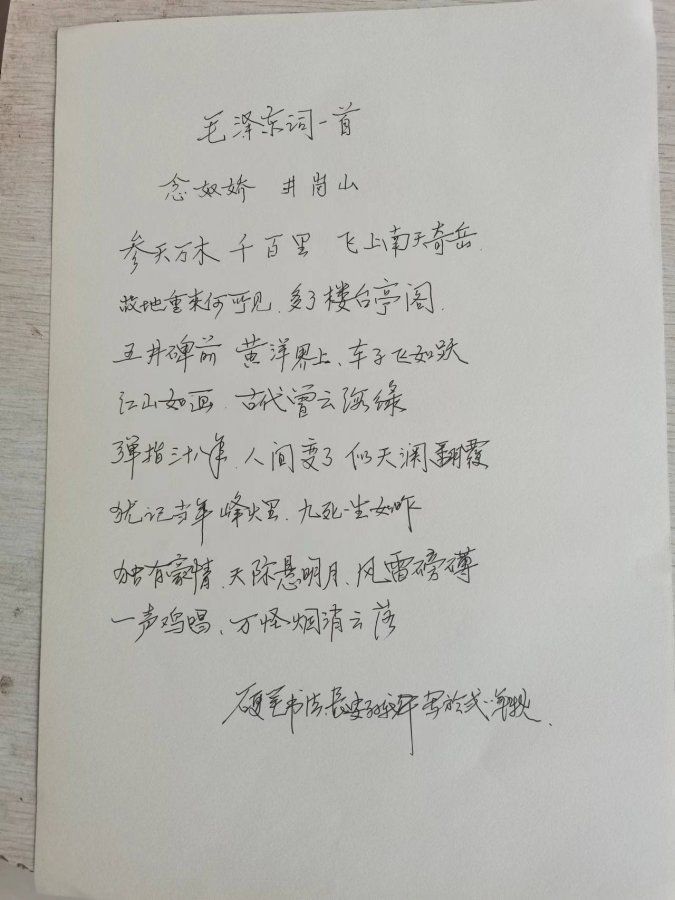 毛泽东词一首
念奴娇 井岗山
参天万木 千百里 飞上南天奇岳.
故地重来何所见.多了楼台亭阁.
五井碑前 黄洋界上、车子飞如跃
江山如画.古代曾云海绿
弹指三十八年.人间变了 似天渊翻覆
犹记当年烽火里.九死一生如昨
独有豪情.天际悬明月、风雷磅礴
一声鸡唱、万怪烟消云落
硬笔书法长安